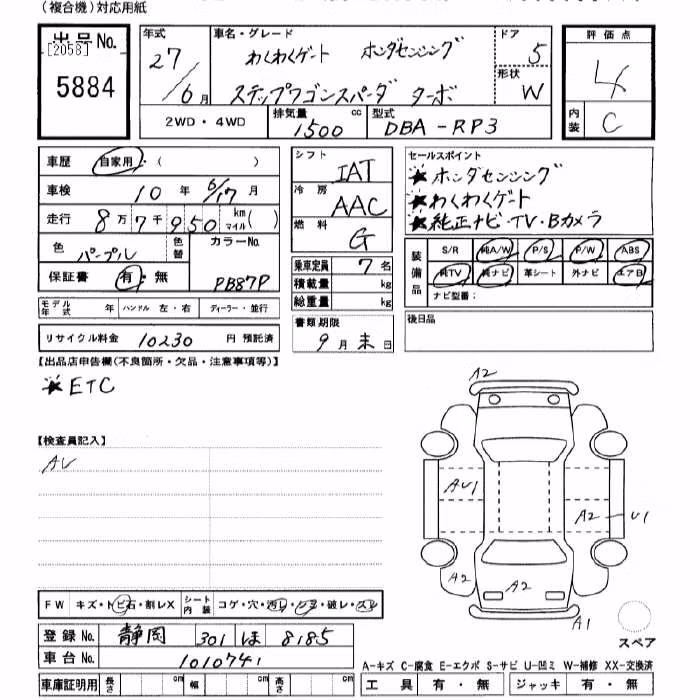 (複合機)対応用紙
出品No.
[2058]
5884
年式
27/6月
車名・グレード
わくわくゲート ホンダセンシング
ステップワゴンスパーダ ターボ
ドア
5
形状
W
評価点
4
内装
C
2WD・4WD
排気量
1500 cc
型式
DBA-RP3
車歴 自家用・( )
車検 10年 6/17月
走行 8万7千950 km マイル( )
色 パープル
色替
カラーNo.
PB87P
保証書 有・無
モデル年式 年 ハンドル 左・右 ディーラー・並行
リサイクル料金 10230 円 預託済
シフト
IAT
冷房
AAC
燃料
G
乗車定員 7名
積載量 kg
総重量 kg
書類期限
9月末日
セールスポイント
★ホンダセンシング
★わくわくゲート
★純正ナビ・TV・Bカメラ
装備品
S/R 純A/W P/S P/W ABS
純TV 純ナビ 革シート 外ナビ エアB
ナビ型番:
後日品
【出品店申告欄(不良箇所・欠品・注意事項等)】
★ETC
【検査員記入】
AU
A2
AU1
A2
U1
A2
A2
A1
スペア
FW キズ・トビ石・割レX
シート内装 コゲ・穴・汚レ・シミ・破レ・スレ
登録No. 静岡 301 ほ 8185
車台No. 1010741
車庫証明用 長さ cm 幅 cm 高さ cm
A-キズ C-腐食 E-エクボ S-サビ U-凹ミ W-補修 XX-交換済
工具 有・無 ジャッキ 有・無